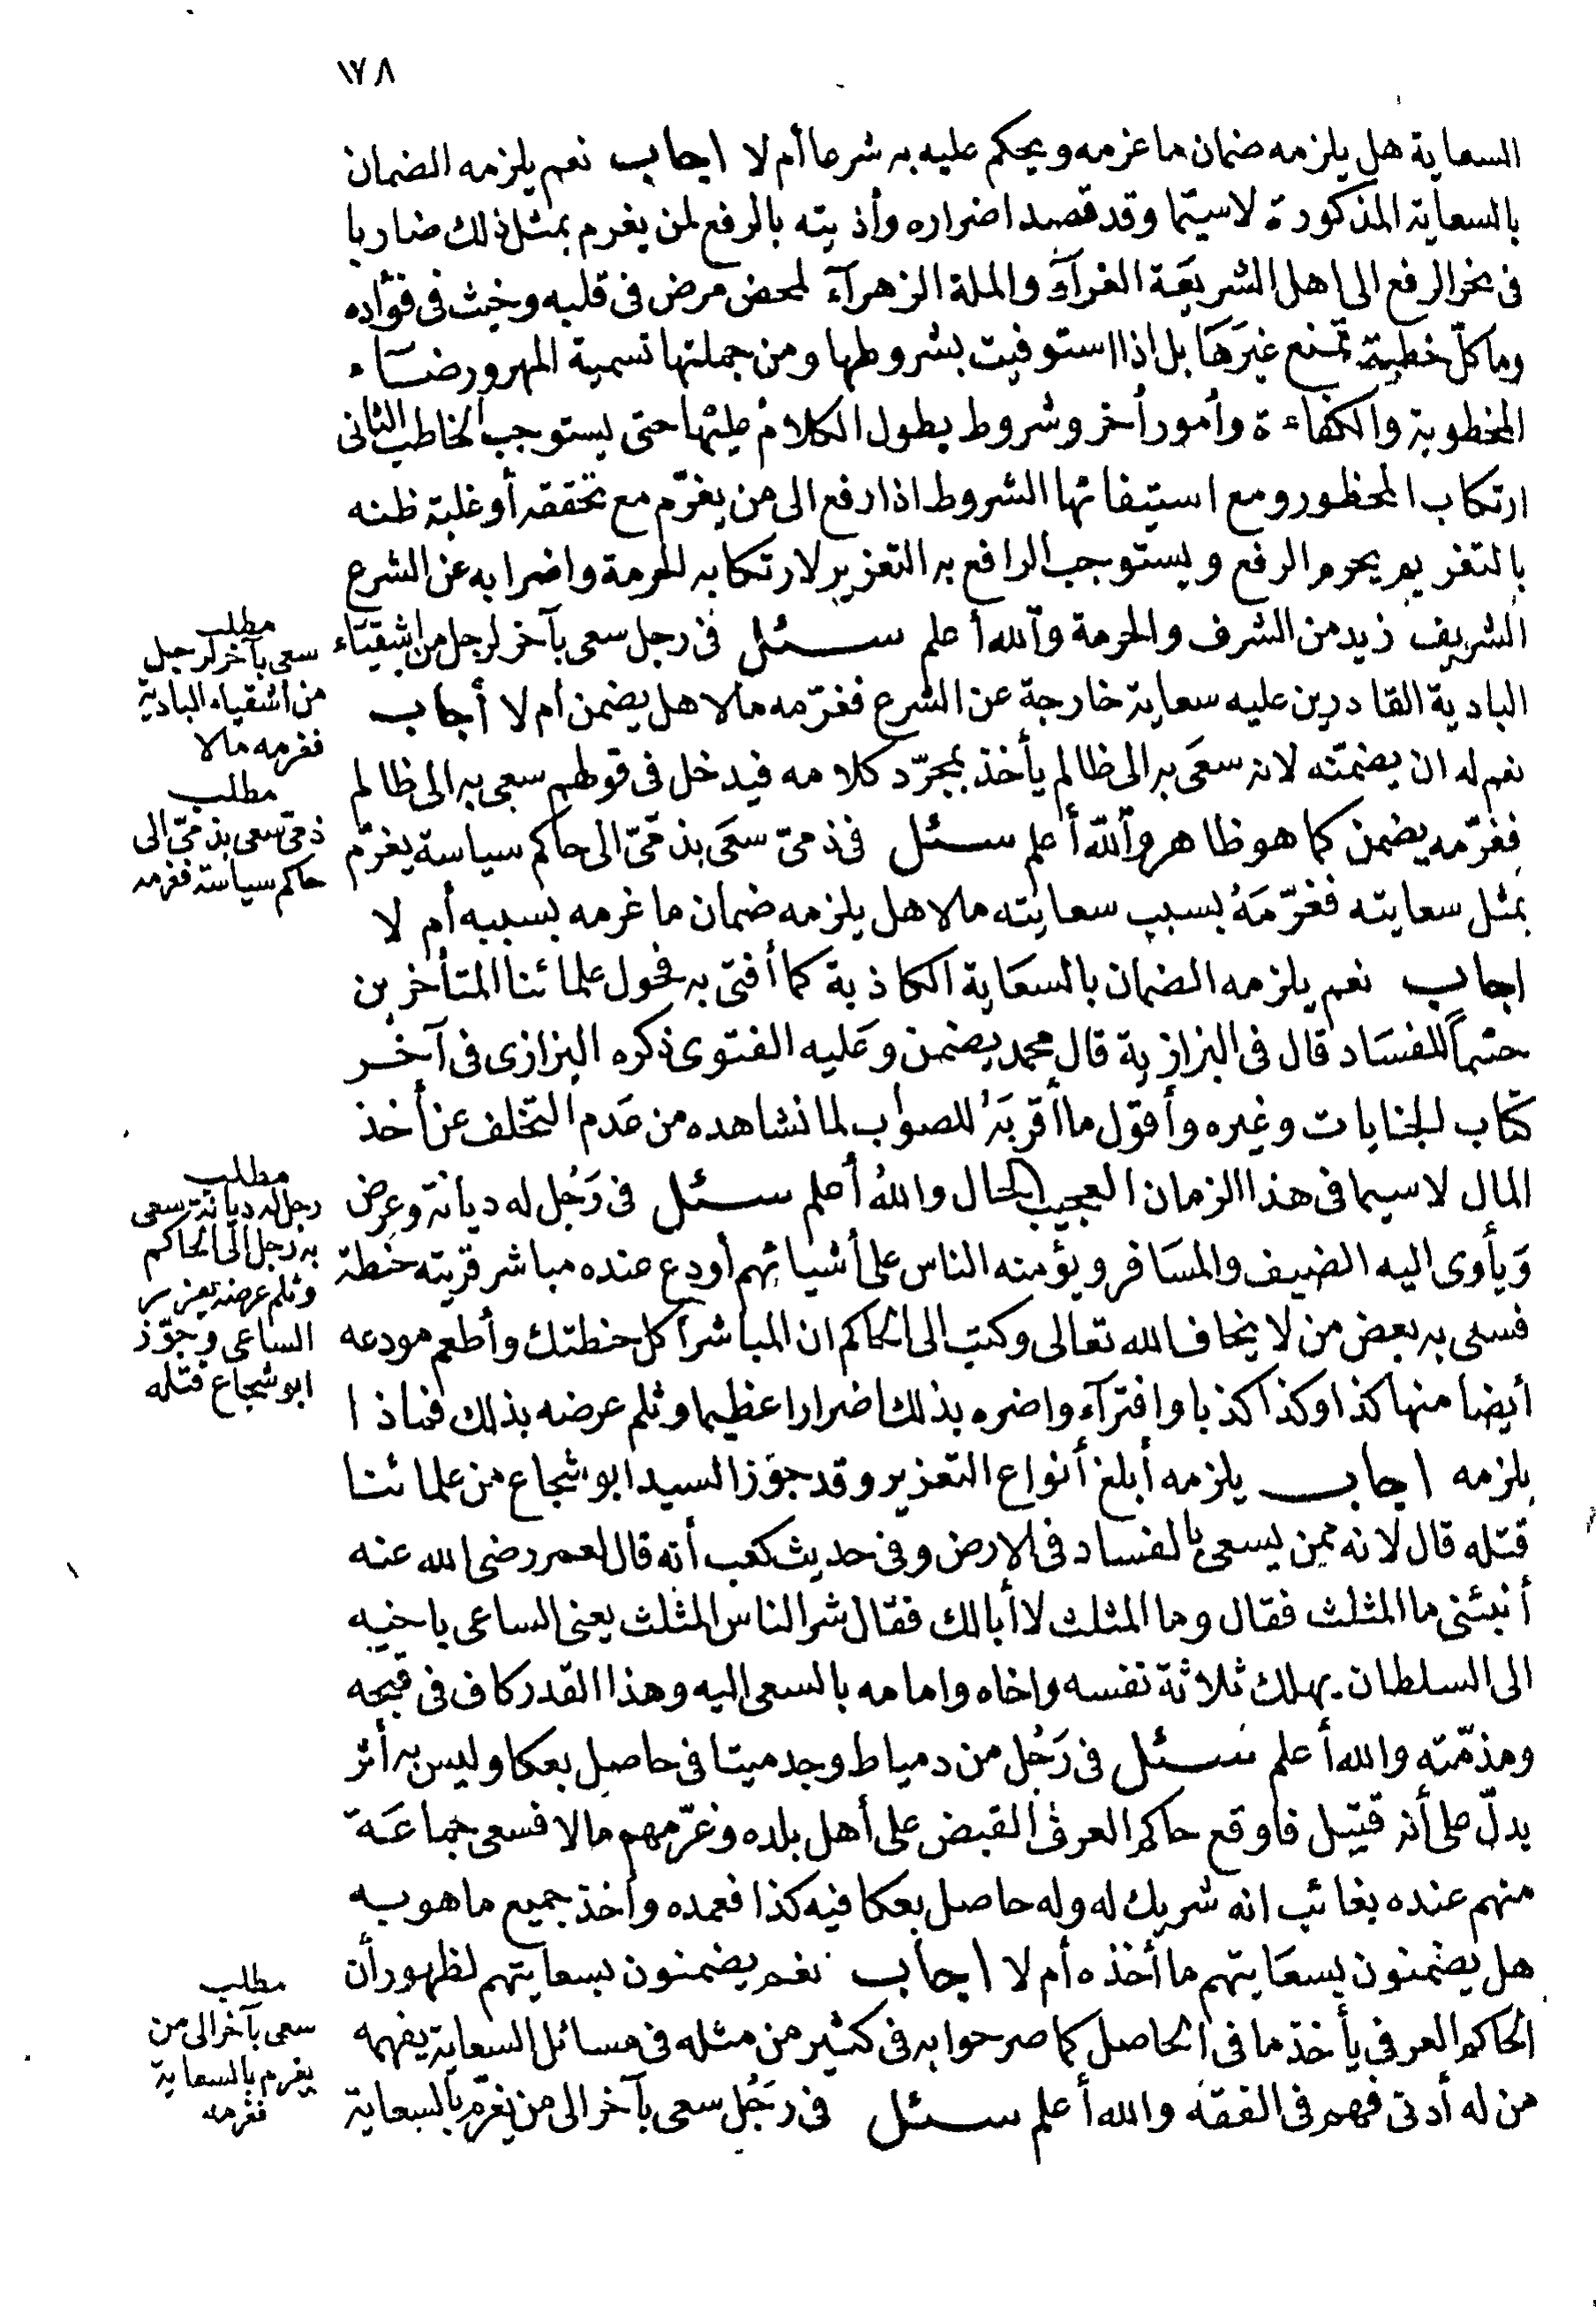 ١٧٨
السعاية هل يلزمه ضمان ما غرمه ويحكم عليه به شرعا أم لا اجاب نعم يلزمه الضمان
بالسعاية المذكورة لاسيّما وقد قصد اضراره وأذيته بالرفع لمن يغرم بمثل ذلك ضاربا
فى نحر الرفع الى اهل الشريعَة الغرآء والملة الزهرآء لمحض مرض فى قلبه وخبث فى فؤاده
وما كلّ خطبة تمنع غيرَهَا بل اذا استوفيت بشروطها ومن جملتها تسمية المهر ورضَاء
المخطوبة والكفاءة وأمور أخر وشروط يطول الكلام عليها حتى يستوجب الخاطب الثانى
ارتكاب المحظور ومع استيفائها الشروط اذا رفع الى من يغرّم مع تحققه أو غلبة ظنه
بالتغريم يحرم الرفع ويستوجب الرافع به التعزير لارتكابه للحرمة واضرابه عن الشرع
الشريف زيد من الشرف والحرمة والله أعلم سئل فى رجل سعى بآخر لرجل من اشقيَاء
البادية القادرين عليه سعاية خارجة عن الشرع فغرّمه مالا هل يضمن أم لا أجاب
نعم له ان يضمّنه لانه سعَى به الى ظالم يأخذ بمجرّد كلامه فيدخل فى قولهم سعى به الى ظالم
فغرّمه يضمن كما هو ظاهر والله أعلم سئل فى ذمىّ سعَى بذمّىّ الى حاكم سياسة يغرّم
بمثل سعايته فغرّمَهُ بسبب سعايته مالا هل يلزمه ضمان ما غرمه بسببه أم لا
اجاب نعم يلزمه الضمان بالسعَاية الكاذبة كما أفتى به فحول علمائنا المتأخرين
حسْماً للفسَاد قال فى البزازية قال محمد يضمن وعَليه الفتوى ذكره البزازى فى آخر
كتاب الجنايات وغيره وأقول ما أقربَهُ للصواب لما نشاهده من عَدم التخلف عن أخذ
المال لاسيما فى هذا الزمان العجيب الحال واللهُ أعلم سئل فى رَجُل له ديانة وعرض
وَيأوى اليه الضيف والمسَافر ويؤمنه الناس على أشيائهم أودع عنده مباشر قريته حنطة
فسعى به بعض من لا يخاف الله تعالى وكتب الى الحاكم ان المباشر أكل حنطتك وأطعم مودعه
أيضا منها كذا وكذا كذبا وافترآء واضره بذلك اضرارا عظيما وثلم عرضه بذلك فماذا
يلزمه اجاب يلزمه أبلغ أنواع التعزير وقد جوّز السيد ابو شجاع من علمائنا
قتله قال لانه ممن يسعى بالفساد فى الارض وفى حديث كعب أنه قال لعمر رضى الله عنه
أنبئنى ما المثلث فقال وما المثلث لا أبا لك فقال شر الناس المثلث يعنى الساعى باخيه
الى السلطان يهلك ثلاثة نفسه واخاه وامامه بالسعى اليه وهذا القدر كاف فى قبحه
ومذمّته والله أعلم سئل فى رَجُل من دمياط وجد ميتا فى حاصل بعكا وليس به أثر
يدلّ على أنه قتيل فاوقع حاكم العرف القبض على أهل بلده وغرّمهم مالا فسعى جماعَة
منهم عنده بغائب انه شريك له وله حاصل بعكا فيه كذا فعمده وأخذ جميع ما هو به
هل يضمنون بسعَايتهم ما أخذه أم لا اجاب نعم يضمنون بسعايتهم لظهور أن
الحاكم العرفى يأخذ ما فى الحاصل كما صرحوا به فى كثير من مثله فى مسائل السعاية يفهمه
من له أدنى فهم فى الفقه والله أعلم سئل فى رَجُل سعى بآخر الى من يغرّم بالسعاية
مطلب
سعى بآخر لرجل
من أشقياء البادية
فغرمه مالا
مطلب
ذمىّ سعى بذمىّ الى
حاكم سياسة فغرمه
مطلب
رجل له ديانة سعى
به رجل الى الحاكم
وثلم عرضه يعزر
الساعى وجوّز
ابو شجاع قتله
مطلب
سعى بآخر الى من
يغرم بالسعاية
فغرمه